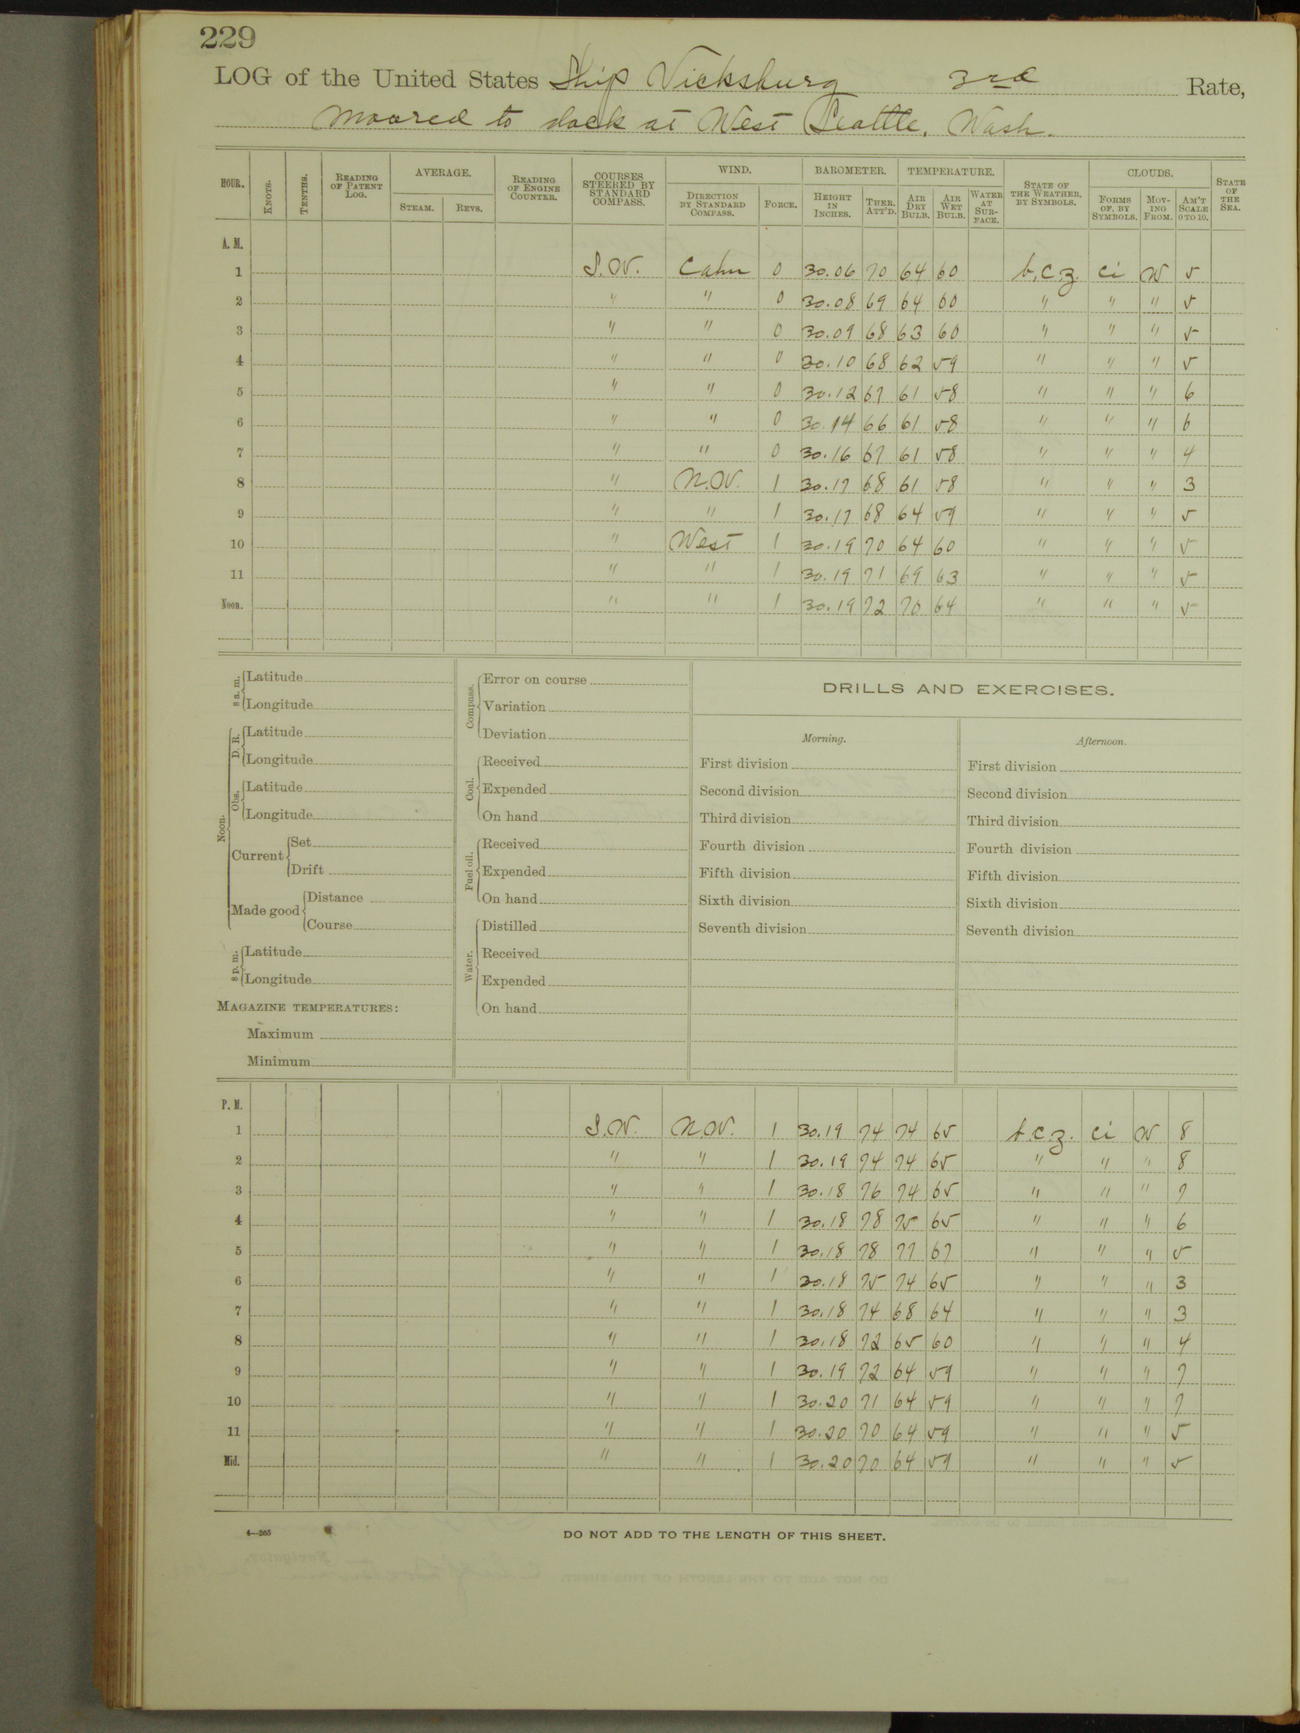 229
LOG of the United States Ship Vicksburg 3rd Rate,
Moored to dock at West Seattle, Wash.
HOUR. KNOTS. TENTHS. READING OF PATENT LOG. AVERAGE. STEAM. REVS. READING OF ENGINE COUNTER. COURSES STEERED BY STANDARD COMPASS. WIND. DIRECTION BY STANDARD COMPASS. FORCE. BAROMETER. HEIGHT IN INCHES. THER. ATT'D. TEMPERATURE. AIR DRY BULB. AIR WET BULB. WATER AT SUR-FACE. STATE OF THE WEATHER, BY SYMBOLS. CLOUDS. FORMS OF, BY SYMBOLS. MOV-ING FROM. AM'T SCALE 0 TO 10. STATE OF THE SEA.
A. M.
1 S.W. Calm 0 30.06 70 64 60 b.c.z. ci W 5
2 " " 0 30.08 69 64 60 " " " 5
3 " " 0 30.09 68 63 60 " " " 5
4 " " 0 30.10 68 62 59 " " " 5
5 " " 0 30.12 67 61 58 " " " 6
6 " " 0 30.14 66 61 58 " " " 6
7 " " 0 30.16 67 61 58 " " " 4
8 " N.W. 1 30.17 68 61 58 " " " 3
9 " " 1 30.17 68 64 59 " " " 5
10 " West 1 30.19 70 64 60 " " " 5
11 " " 1 30.19 71 69 63 " " " 5
Noon. " " 1 30.19 72 70 64 " " " 5
8 a. m. Latitude
Longitude
Noon. D. R. Latitude
Longitude
Obs. Latitude
Longitude
Current Set
Drift
Made good Distance
Course
8 p. m. Latitude
Longitude
MAGAZINE TEMPERATURES:
Maximum
Minimum
Compass. Error on course
Variation
Deviation
Coal. Received
Expended
On hand
Fuel oil. Received
Expended
On hand
Water. Distilled
Received
Expended
On hand
DRILLS AND EXERCISES.
Morning. Afternoon.
First division First division
Second division Second division
Third division Third division
Fourth division Fourth division
Fifth division Fifth division
Sixth division Sixth division
Seventh division Seventh division
P. M.
1 S.W. N.W. 1 30.19 74 74 65 b.c.z. ci W 8
2 " " 1 30.19 74 74 65 " " " 8
3 " " 1 30.18 76 74 65 " " " 7
4 " " 1 30.18 78 75 65 " " " 6
5 " " 1 30.18 78 77 67 " " " 5
6 " " 1 30.18 75 74 65 " " " 3
7 " " 1 30.18 74 68 64 " " " 3
8 " " 1 30.18 72 65 60 " " " 4
9 " " 1 30.19 72 64 59 " " " 7
10 " " 1 30.20 71 64 59 " " " 7
11 " " 1 30.20 70 64 59 " " " 5
Mid. " " 1 30.20 70 64 59 " " " 5
4—265
DO NOT ADD TO THE LENGTH OF THIS SHEET.